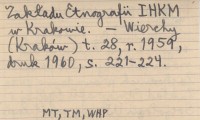 Zakładu Etnografii IHKM
w Krakowie. — Wierchy
(Kraków) t. 28, r. 1959,
druk 1960, s. 221-224.
MT, TM, WHP